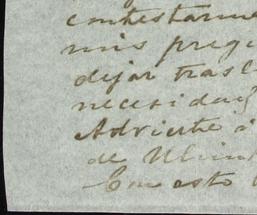 contestarme
mis preg
dejar trasl
necesidad
Advierte a
de
Con esto